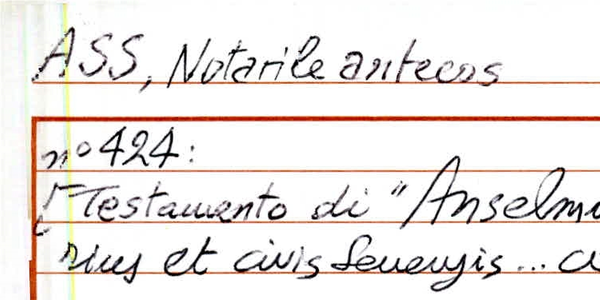 ASS, Notarile antecos
n° 424:
[Testamento di "Anselmu
rius et civis Senensis...